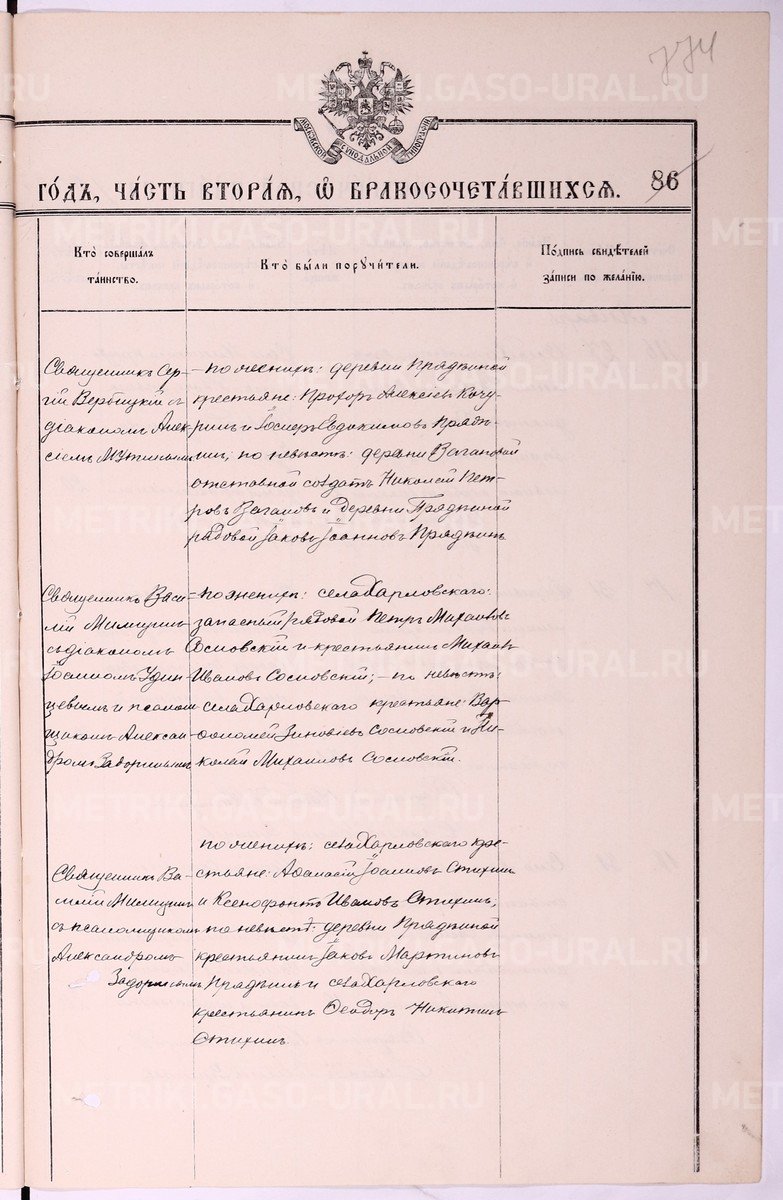 774
МОСКОВСКОЙ СУНОДАЛЬНОЙ ТИПОГРАФІИ
ГО́ДЪ, ЧА́СТЬ ВТОРА́Я, Ѽ БРАКОСОЧЕТА́ВШИХСЯ. 86
Кто̀ соверша́лъ
та́инство.
Кто̀ бы́ли порꙋчи́тели.
По́дпись свидѣ́телей
за́писи по жела́нію.
Священникъ Сер-
гій Вербицкій съ
діакономъ Алек-
сіемъ
по женихѣ: деревни Прядкиной
крестьяне: Прохоръ Алексіевъ Кочу-
ринъ и Іосифъ Евдокимовъ Прядк-
инъ; по невѣстѣ: деревни Вагановой
отставной солдатъ Николай Пет-
ровъ Вагановъ и деревни Прядкиной
рядовой Іаковъ Іоанновъ Прядкинъ
Священникъ Васи-
лій Милицинъ
съ діакономъ
Іоанномъ Удин-
цевымъ и псалом-
щикомъ Алексан-
дромъ Задоринымъ
по женихѣ: села Харловскаго:
запасный рядовой Петръ Михаиловъ
Сосновскій и крестьянинъ Михаилъ
Ивановъ Сосновскій; – по невѣстѣ:
села Харловскаго крестьяне: Вар-
ѳоломей Зиновіевъ Сосновскій и Ни-
колай Михаиловъ Сосновскій.
Священникъ Ва-
силій Милицинъ
съ псаломщикомъ
Александромъ
Задоринымъ
по женихѣ: села Харловскаго кре-
стьяне: Аѳанасій Іоанновъ Стихинъ
и Ксенофонтъ Ивановъ Стихинъ;
по невѣстѣ: деревни Прядкиной
крестьянинъ Іаковъ Мартиновъ
Прядкинъ и села Харловскаго
крестьянинъ Ѳеодоръ Никитинъ
Стихинъ.
METRIKI.GASO-URAL.RU